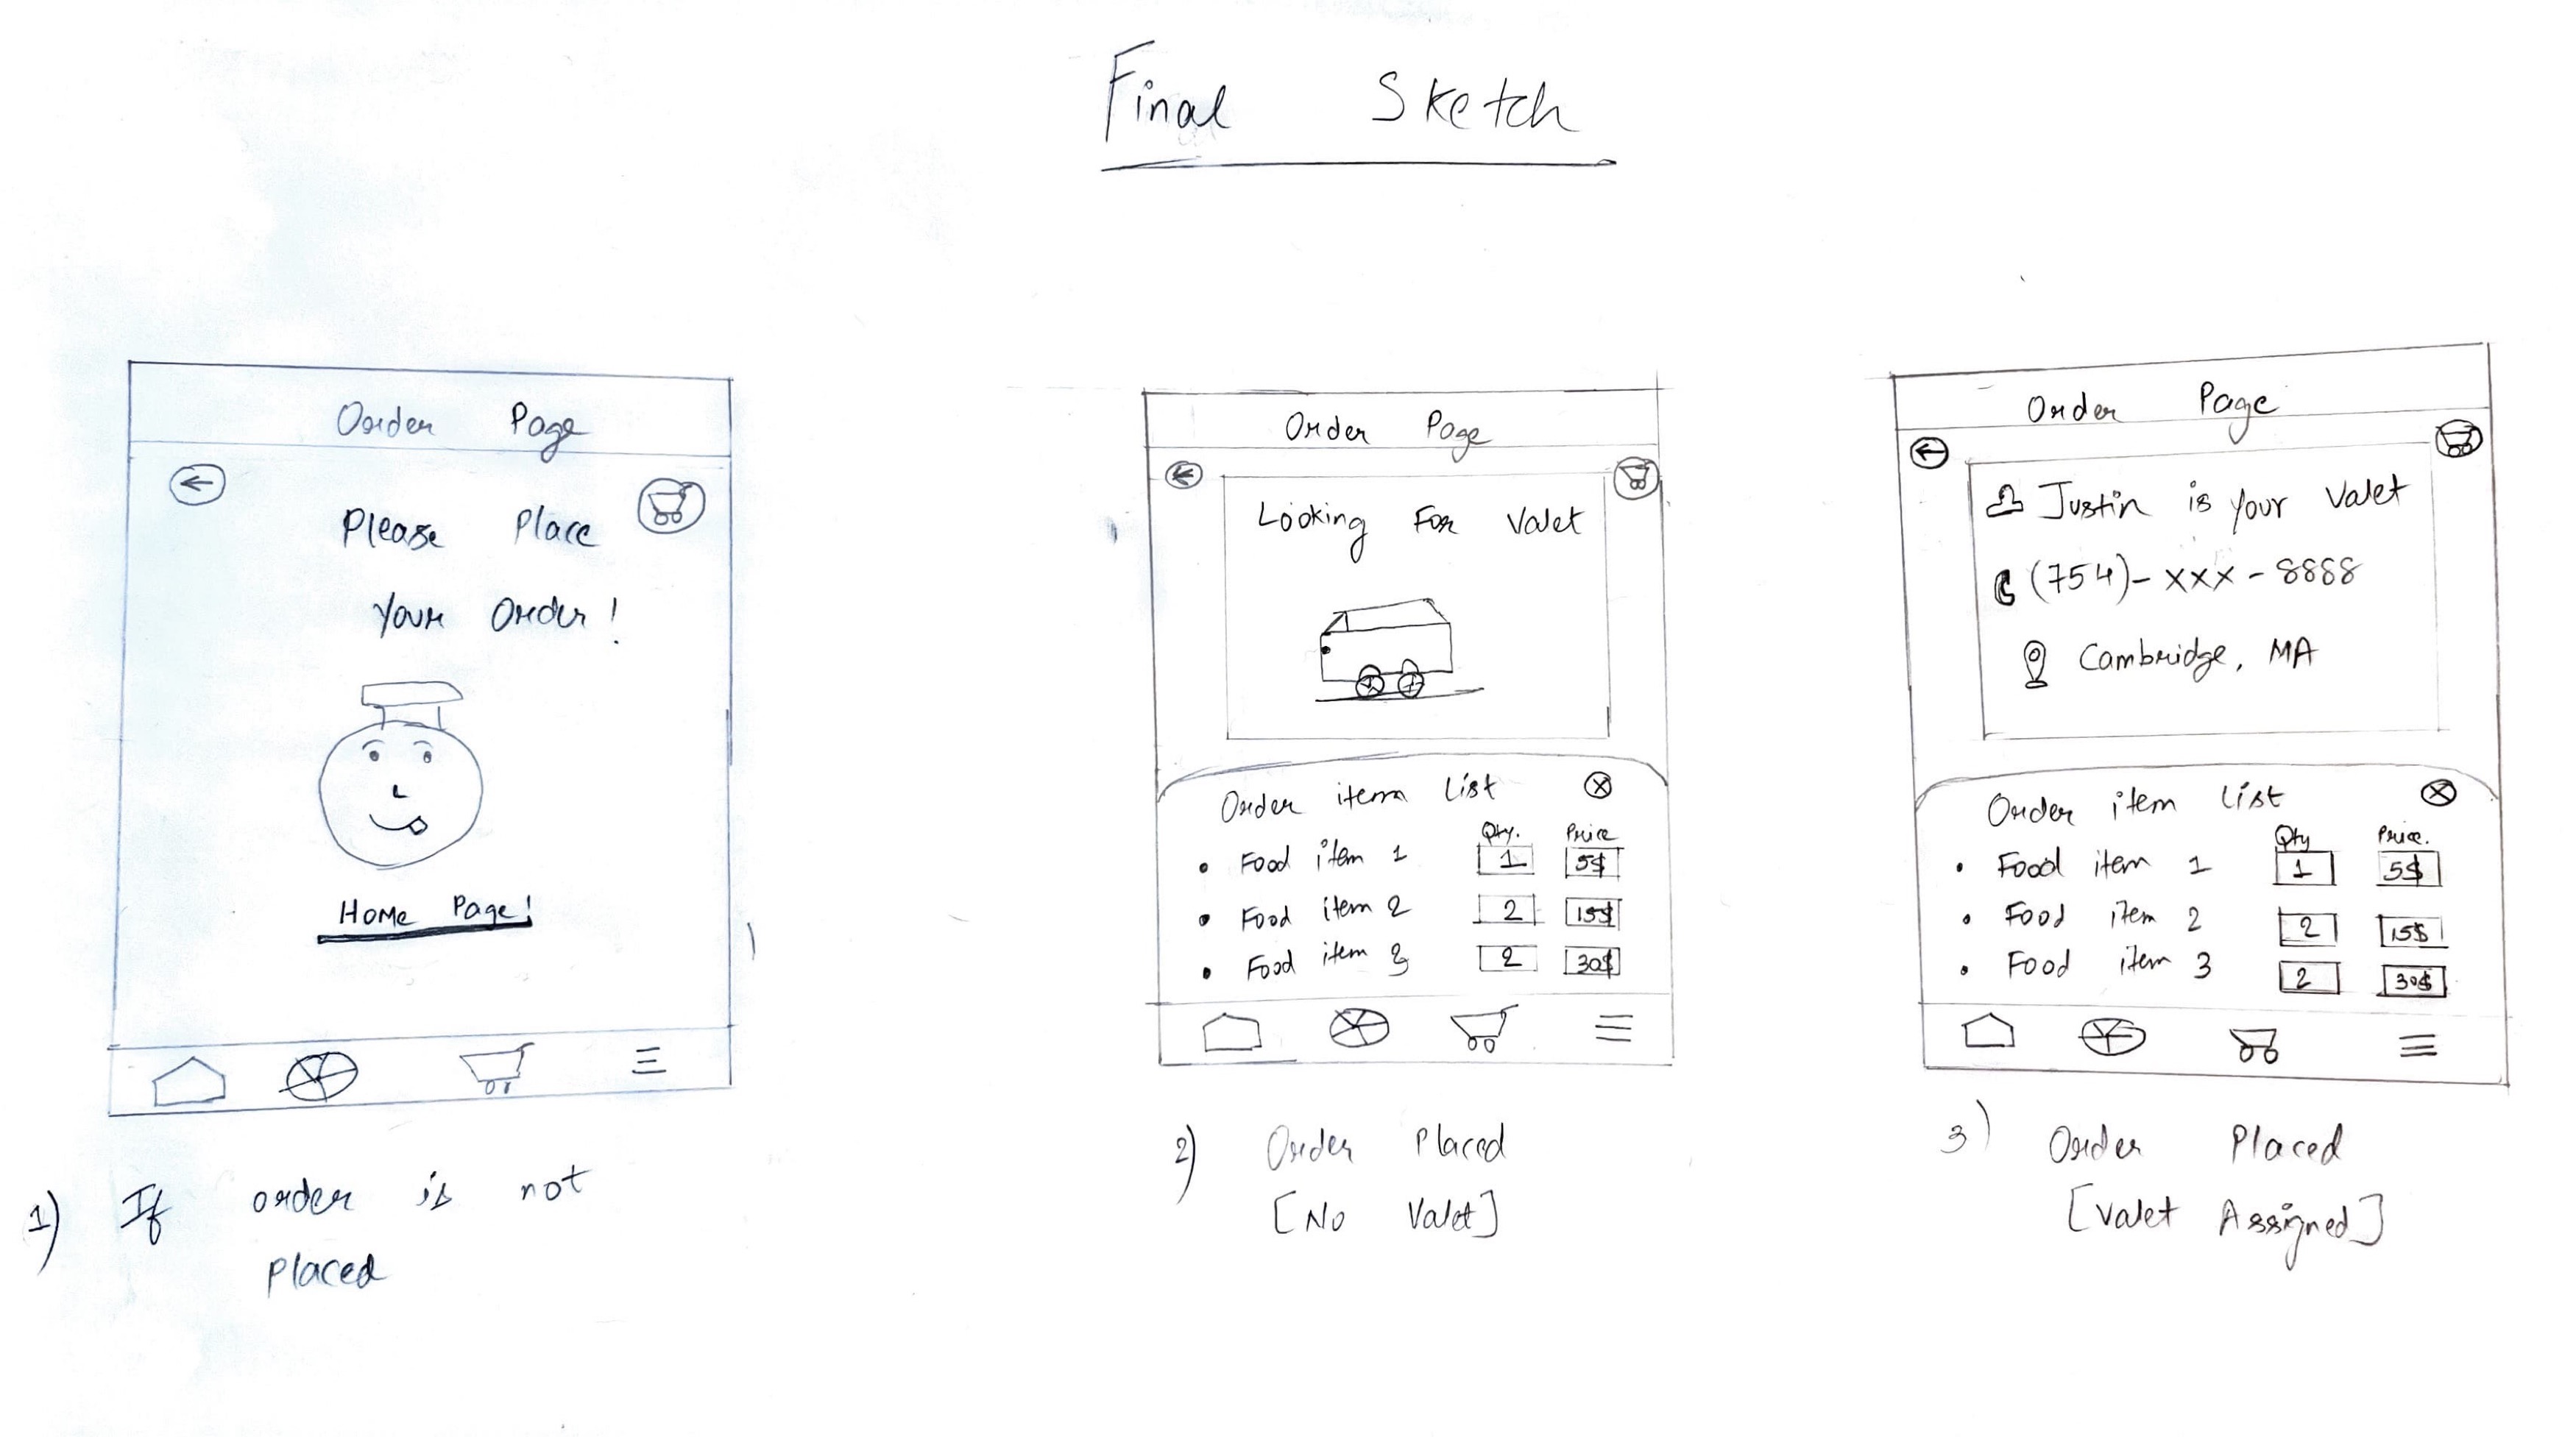 Final Sketch
Order Page
Please Place
Your Order!
Home Page!
1) If order is not
placed
Order Page
Looking For Valet
Order item List
Qty. Price
• Food item 1 1 5$
• Food item 2 2 15$
• Food item 3 2 30$
2) Order Placed
[No Valet]
Order Page
Justin is your Valet
(754)-xxx-8888
Cambridge, MA
Order item List
Qty Price.
• Food item 1 1 5$
• Food item 2 2 15$
• Food item 3 2 30$
3) Order Placed
[Valet Assigned]